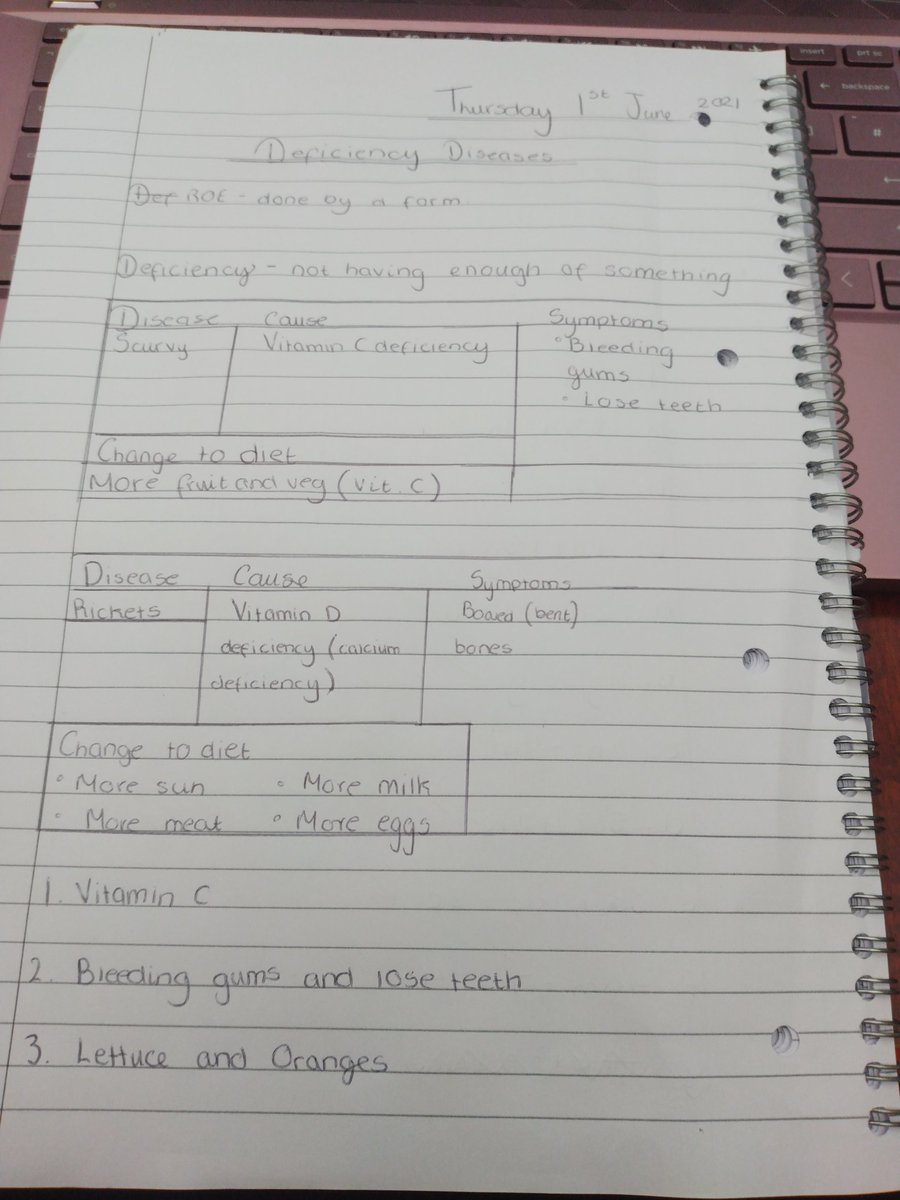 insert prt sc
← backspace
#
<
Thursday 1st June 2021
Deficiency Diseases
Def BOE - done by a form
Deficiency - not having enough of something
Disease Cause Symptoms
Scurvy Vitamin C deficiency • Bleeding
gums
• Lose teeth
Change to diet
More fruit and veg (Vit. C)
Disease Cause Symptoms
Rickets Vitamin D Bowed (bent)
deficiency (calcium bones
deficiency)
Change to diet
• More sun • More milk
• More meat • More eggs
1. Vitamin C
2. Bleeding gums and lose teeth
3. Lettuce and Oranges